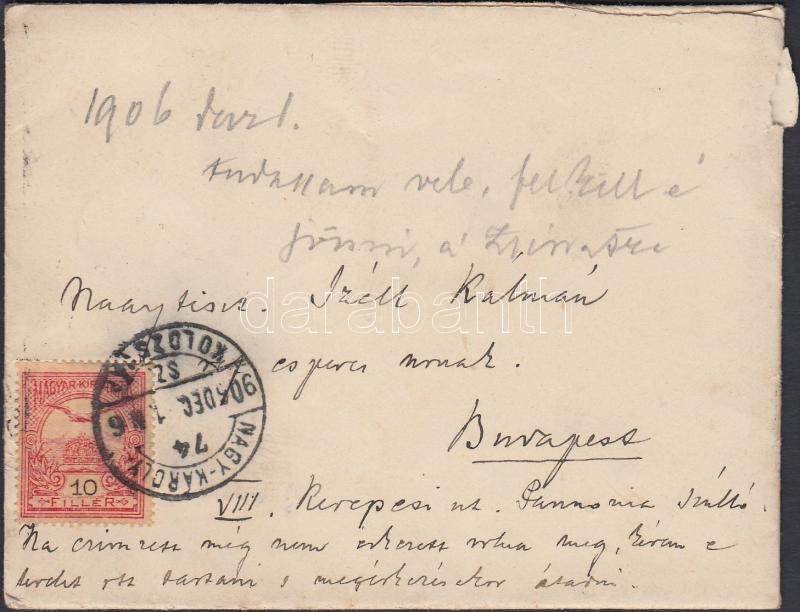 1906 dec 1.
tudassam vele, fel kell é
jönni, a
Nagytiszt. Széll Kálmán
esperes urnak.
Budapest
VIII. Kerepesi ut. Pannonia Szálló.
Ha czimzett még nem érkezett volna meg, kérem e
levelet ott tartani s megérkezésekor átadni.
NAGY-KÁROLY KOLOZSVÁR
SZ
906 DEC 1 N6
74
MAGYAR KIR
10
FILLÉR
darabanth